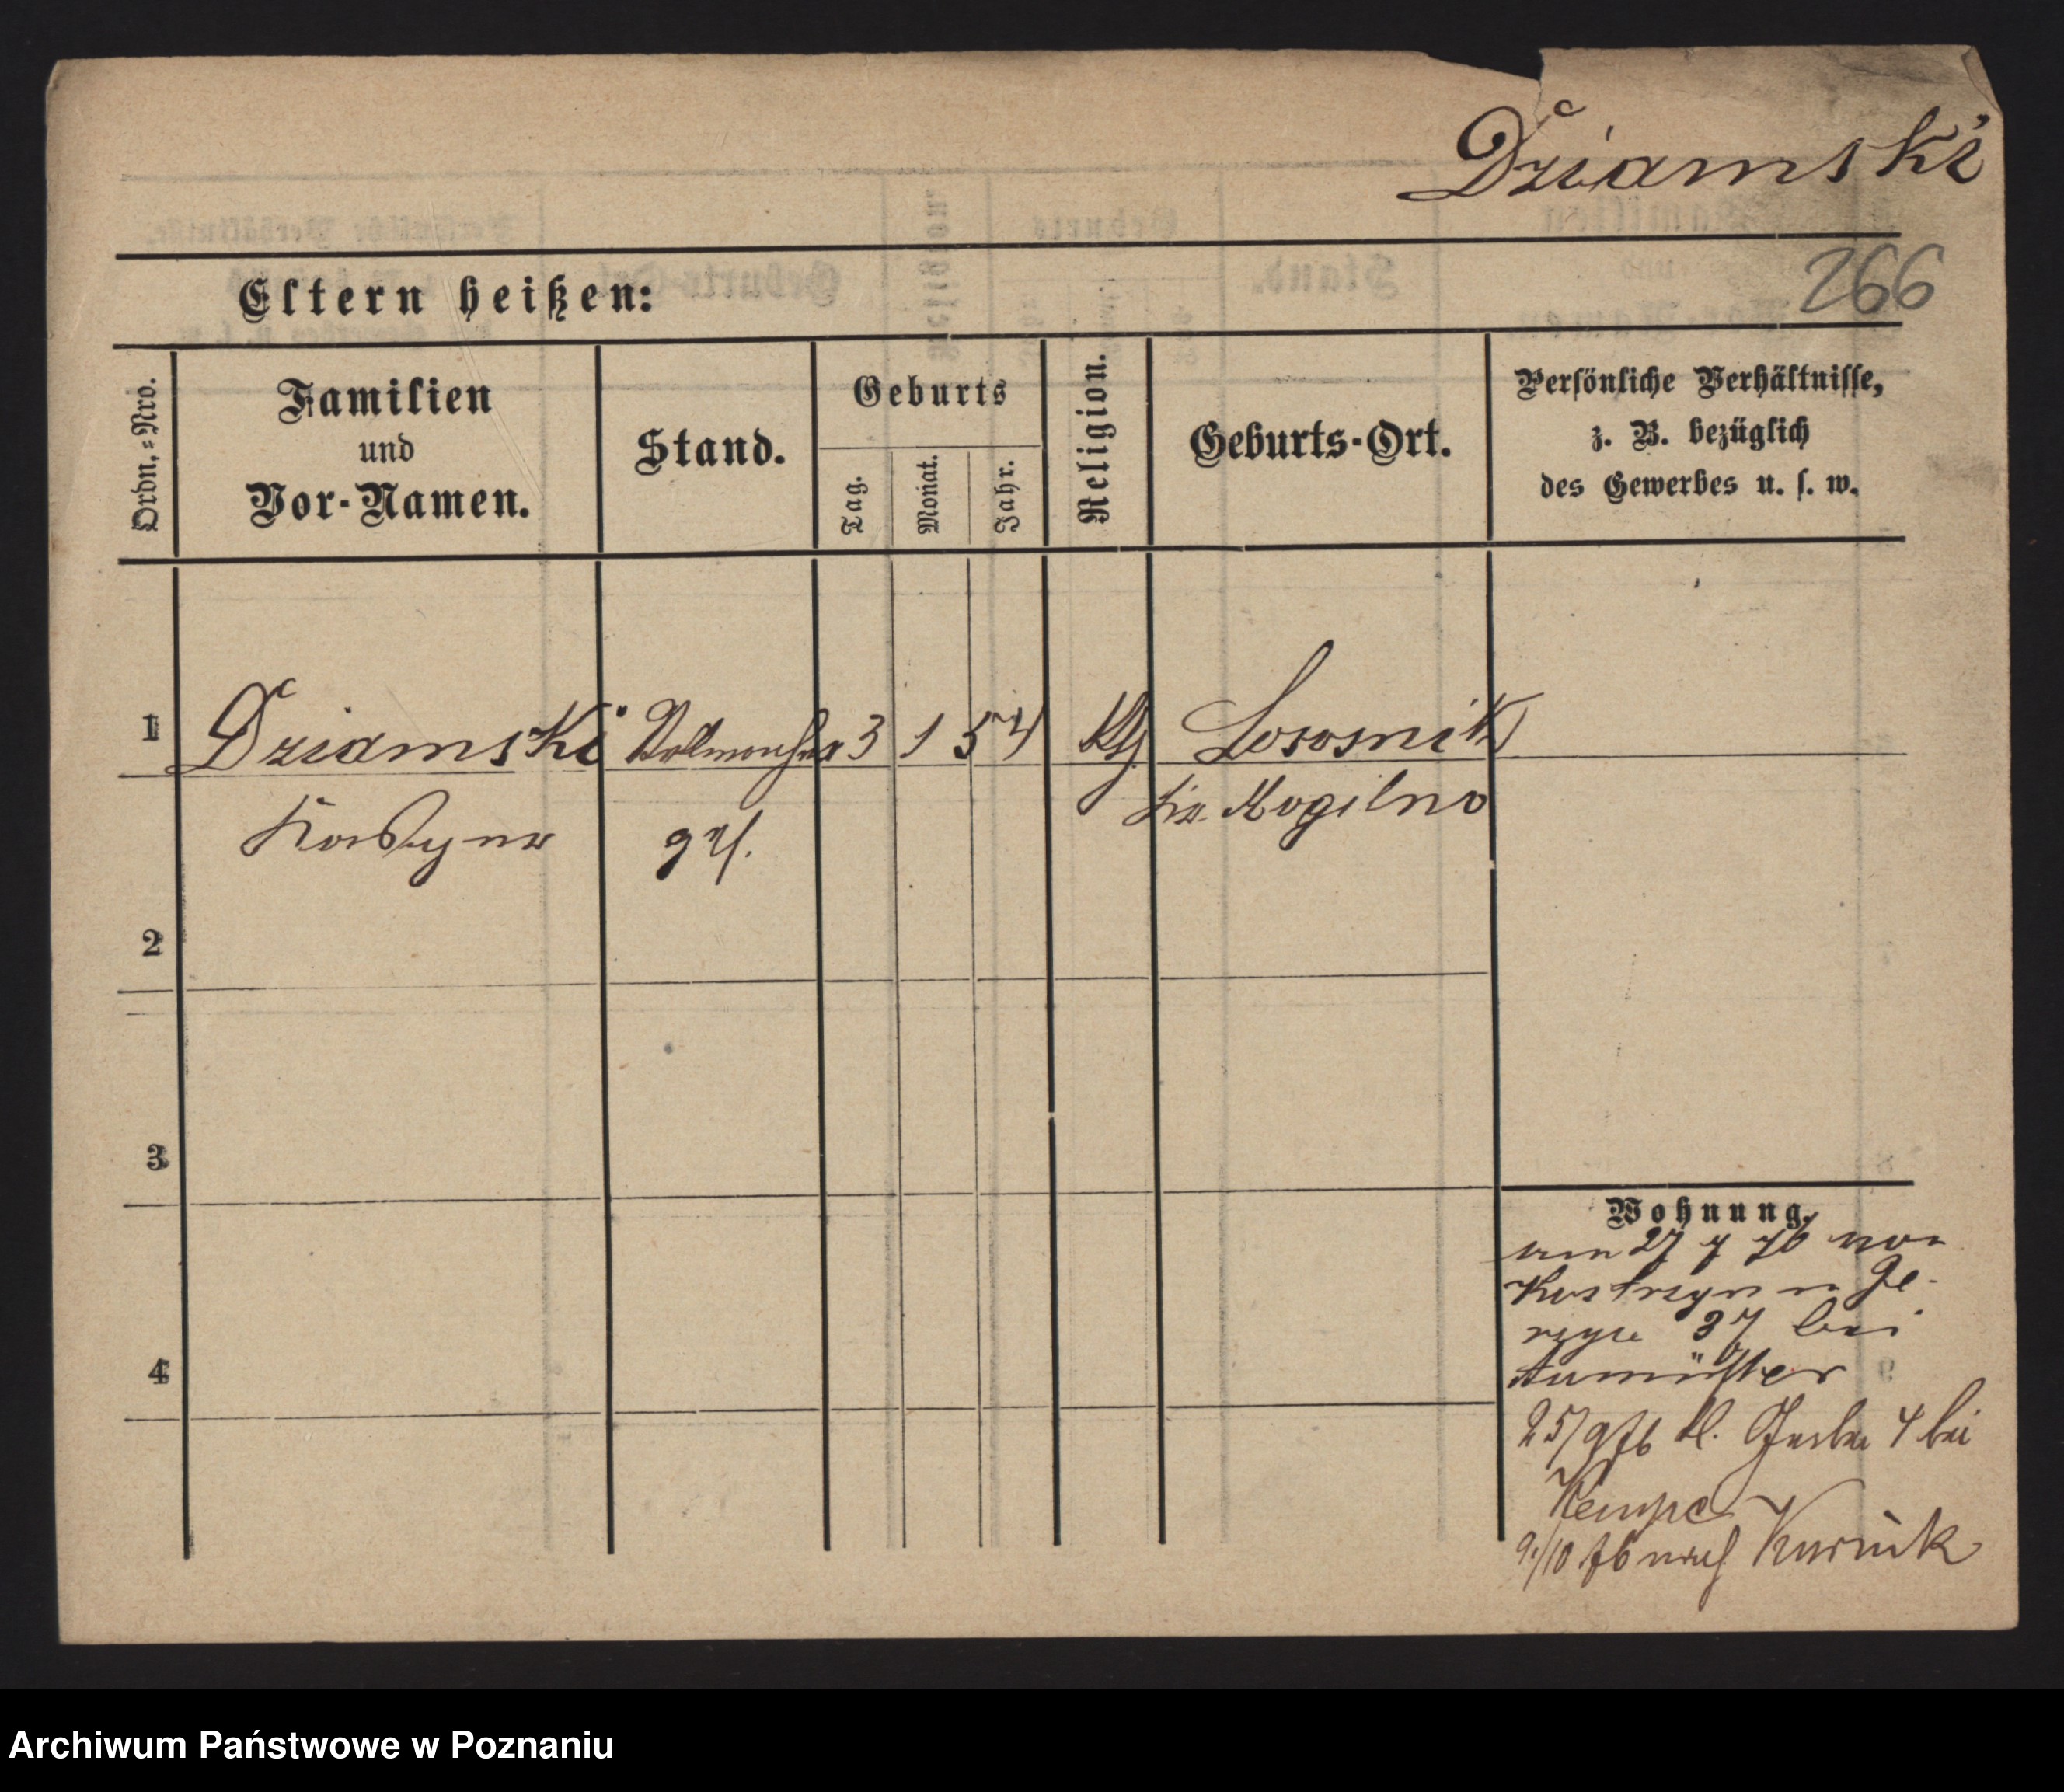 Dziamski
266
Eltern heißen:
Ordn.=Nro.
Familien
und
Vor-Namen.
Stand.
Geburts
Tag.
Monat.
Jahr.
Religion.
Geburts-Ort.
Persönliche Verhältnisse,
z. B. bezüglich
des Gewerbes u. s. w.
1
Dziamski
3
1
54
Kth
Lososnik
Krs. Mogilno
2
3
4
Wohnung.
am 27 7 76 von
Kostrzyn n Ge-
37 bei
25/9 76 kl. Gerber 4 bei
Kempe
9/10 76 nach Kurnik
Archiwum Państwowe w Poznaniu